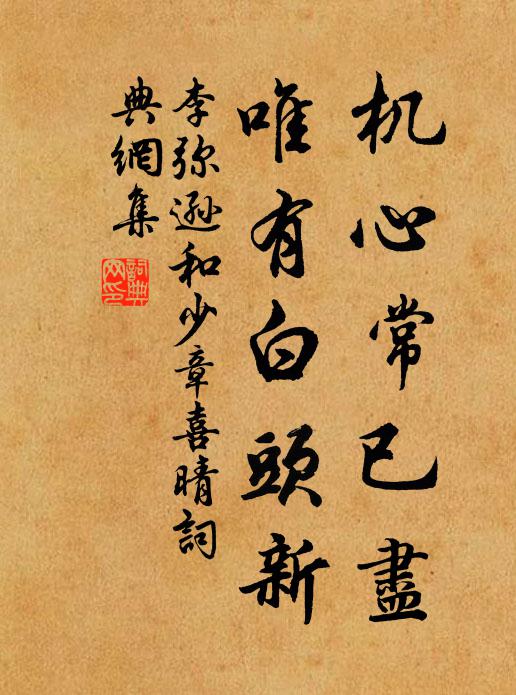 机心常已盡
唯有白頭新
李弥遜和少章喜晴詞
典網集
詞典
网印